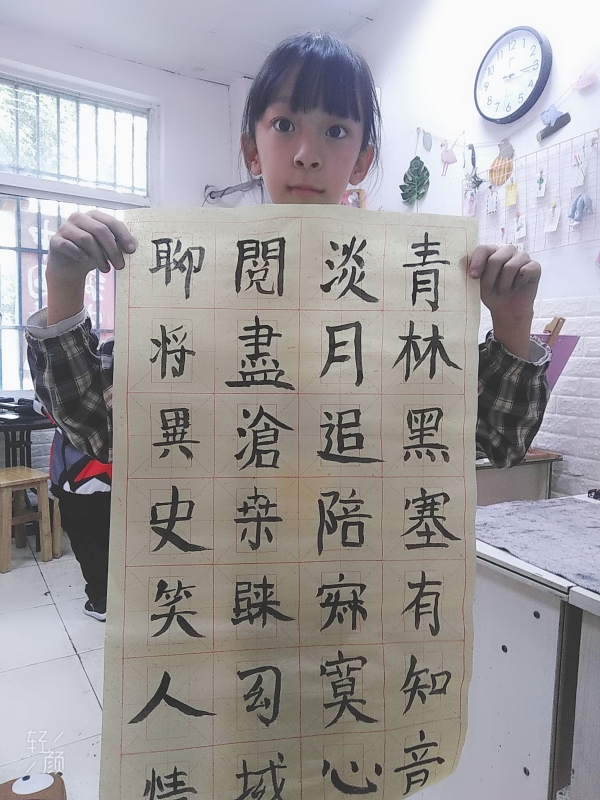 青林黑塞有知音
淡月追陪寂寞心
閱盡滄桒域
聊將異史笑人情
轻颜